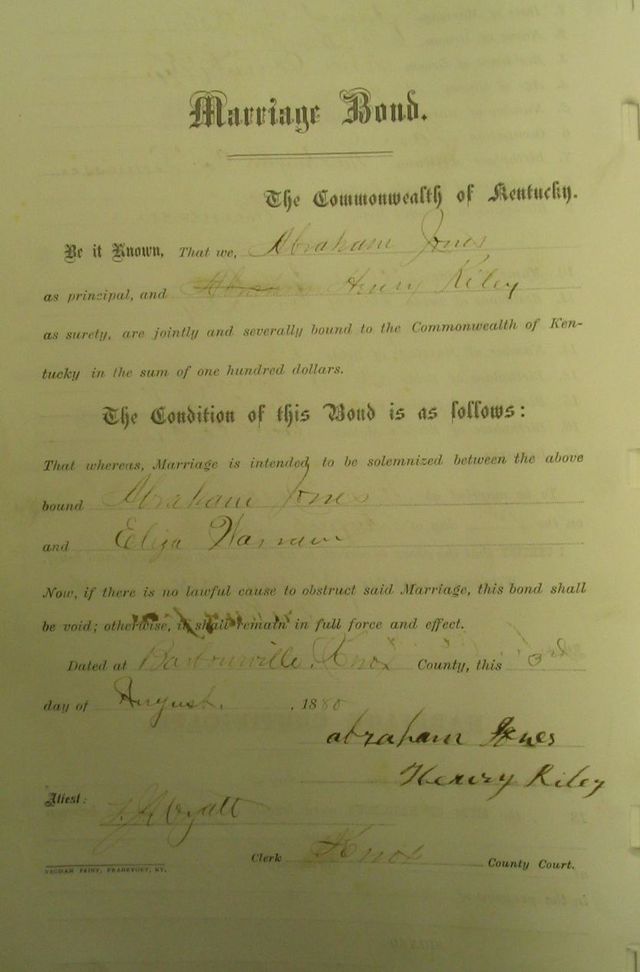 Marriage Bond.
The Commonwealth of Kentucky.
Be it Known, That we, Abraham Jones
as principal, and Henry Riley
as surety, are jointly and severally bound to the Commonwealth of Ken-
tucky in the sum of one hundred dollars.
The Condition of this Bond is as follows:
That whereas, Marriage is intended to be solemnized between the above
bound Abraham Jones
and Eliza
Now, if there is no lawful cause to obstruct said Marriage, this bond shall
be void; otherwise, it shall remain in full force and effect.
Dated at Barbourville, Knox County, this 3rd
day of August, 1880
abraham Jones
Henry Riley
Attest:
Clerk Knox County Court.
YEOMAN PRINT, FRANKFORT, KY.